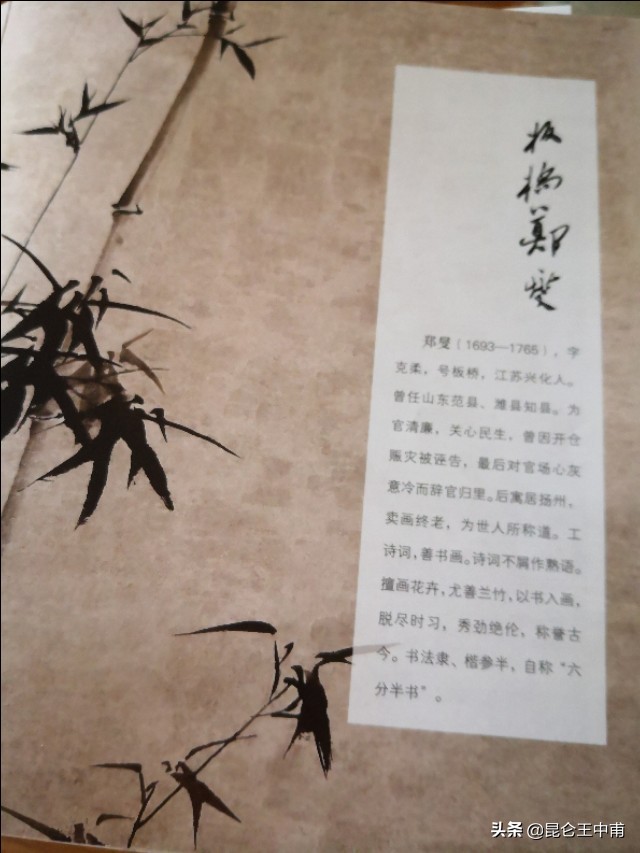 板桥郑燮
郑燮（1693—1765），字
克柔，号板桥，江苏兴化人。
曾任山东范县、潍县知县。为
官清廉，关心民生，曾因开仓
赈灾被诬告，最后对官场心灰
意冷而辞官归里。后寓居扬州，
卖画终老，为世人所称道。工
诗词，善书画。诗词不屑作熟语。
擅画花卉，尤善兰竹，以书入画，
脱尽时习，秀劲绝伦，称誉古
今。书法隶、楷参半，自称“六
分半书”。
头条 @昆仑王中甫